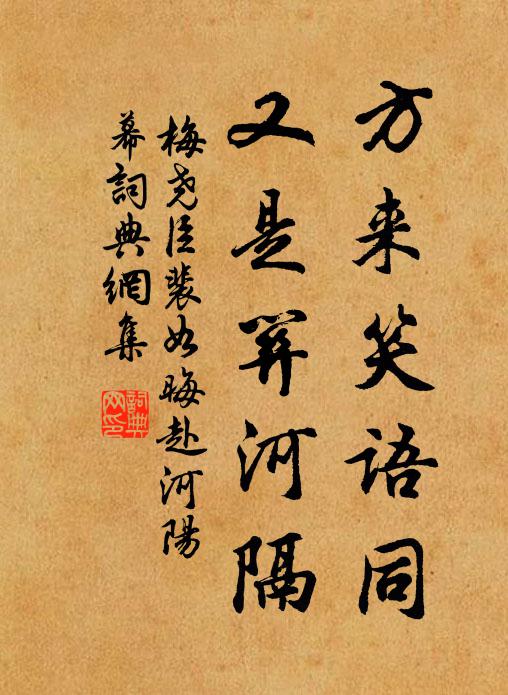 方来笑語同
又是關河隔
梅尧臣裴如晦赴河陽
幕詞典網集
詞典
网印